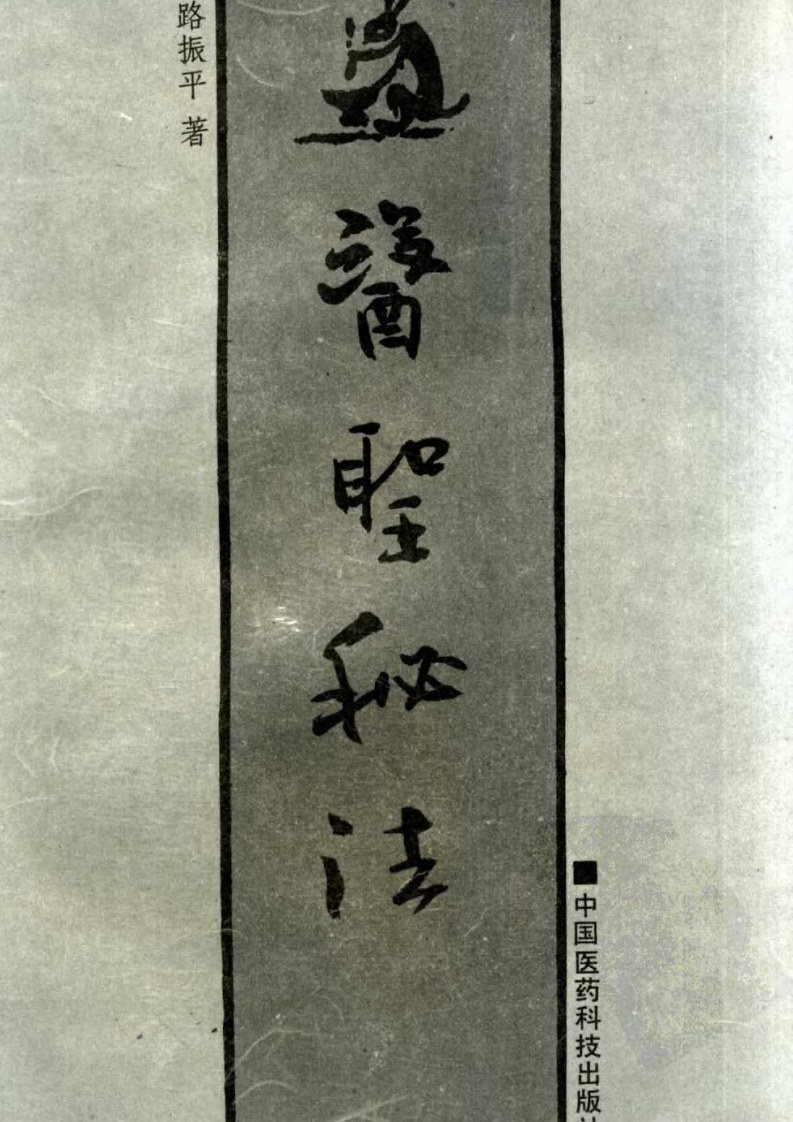 ■中国医药科技出版
醫聖秘法
路振平 著